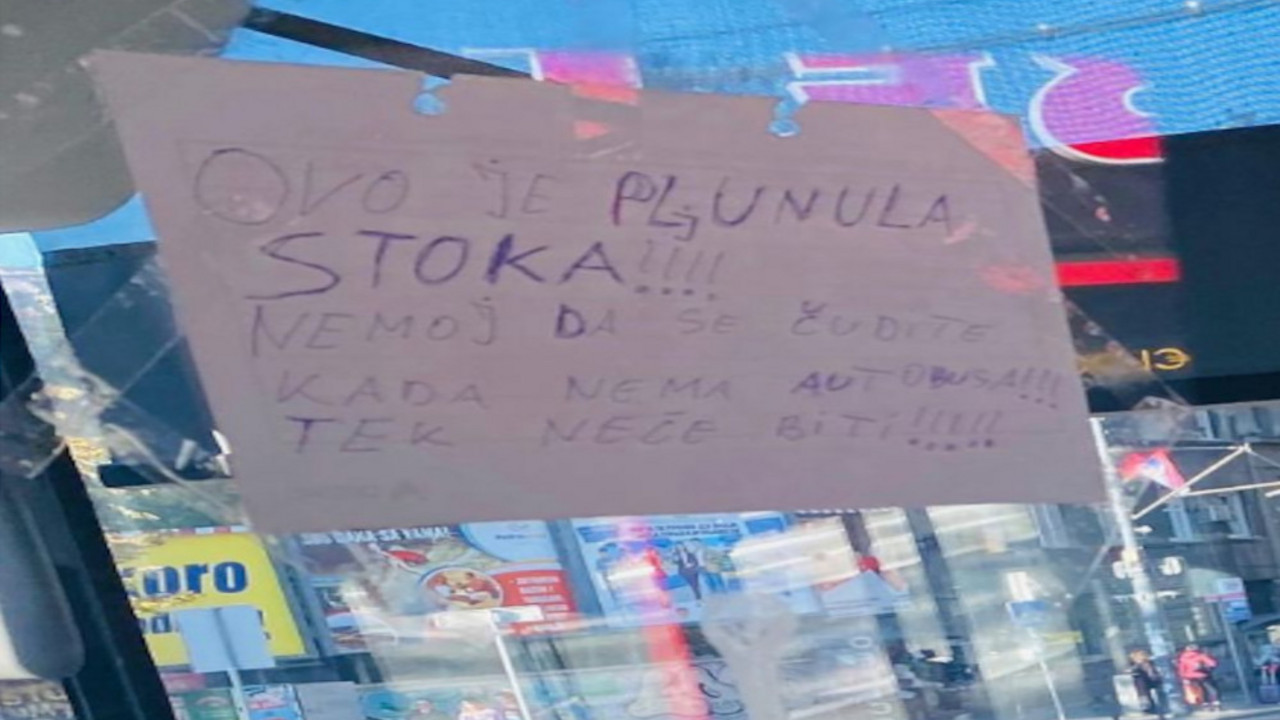 OVO JE PLJUNULA
STOKA!!!!
NEMOJ DA SE ČUDITE
KADA NEMA AUTOBUSA!!!
TEK NEĆE BITI!!!!!!
oro